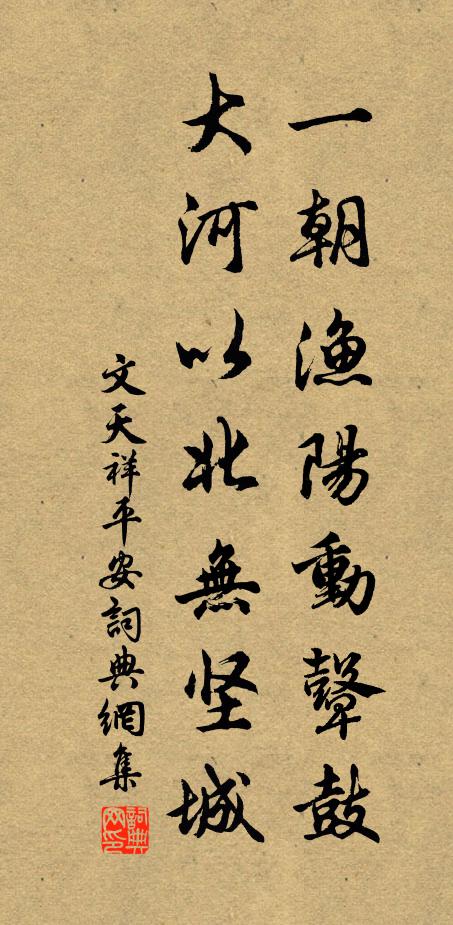 一朝漁陽動鼙鼓
大河以北無坚城
文天祥平安詞典網集
詞典网印